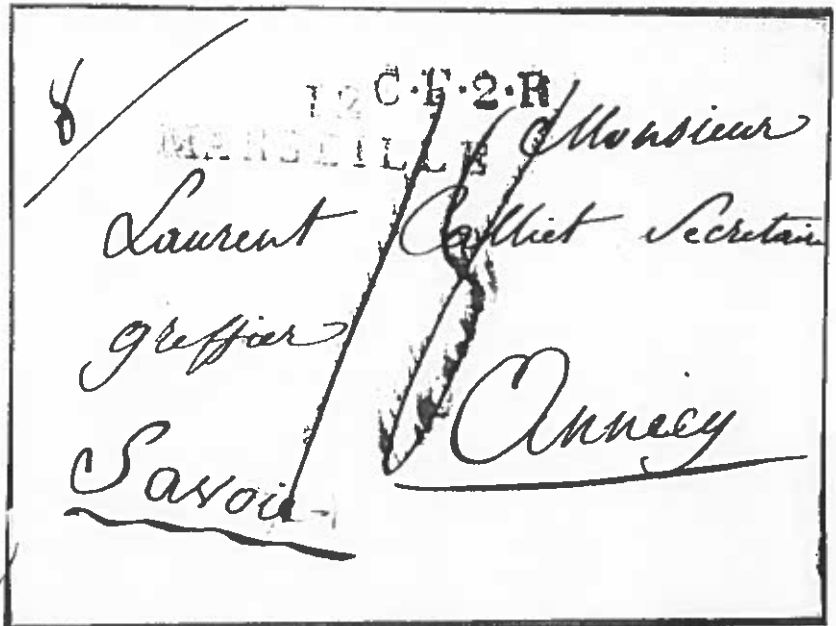 8
C·F·2·R
12
MARSEILLE
Monsieur
Laurent Calliet Secretaire
greffier
Annecy
Savoie